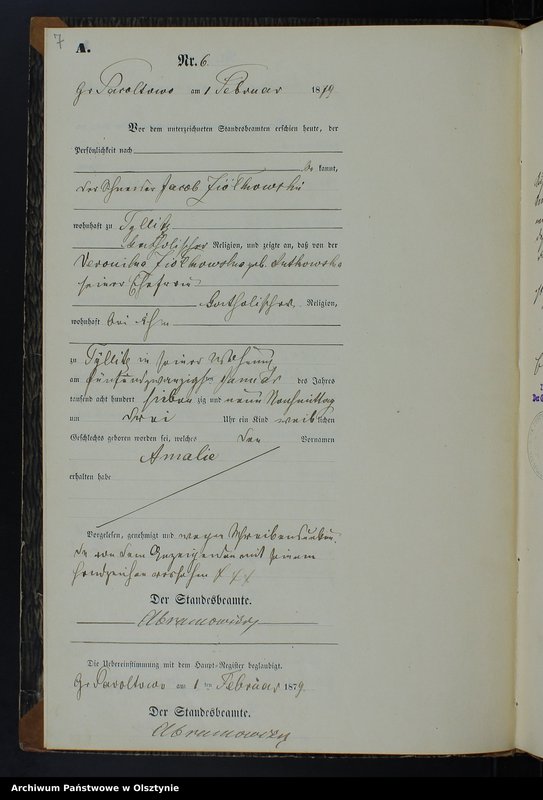 7
A.
Nr. 6
Gr Pacoltowo am 1 Februar 1879
Vor dem unterzeichneten Standesbeamten erschien heute, der
Persönlichkeit nach
be kannt,
der Schneider Jacob Ziólkowski
wohnhaft zu Tyllitz
katholischer Religion, und zeigte an, daß von der
Veronika Ziolkowska geb. Rutkowska
seiner Ehefrau
katholischer Religion,
wohnhaft bei ihm
zu Tyllitz in seiner Wohnung
am fünfundzwanzigsten Januar des Jahres
tausend acht hundert sieben zig und neun Nachmittag
um drei Uhr ein Kind weiblichen
Geschlechts geboren worden sei, welches den Vornamen
Amalie
erhalten habe
Vorgelesen, genehmigt und wegen Schreibensunkun
de von dem Anzeigenden mit seinem
Handzeichen versehen + + +
Der Standesbeamte.
Abramowicz
Die Uebereinstimmung mit dem Haupt-Register beglaubigt.
Gr Pacoltowo am 1 ten Februar 1879
Der Standesbeamte.
Abramowicz
Archiwum Państwowe w Olsztynie